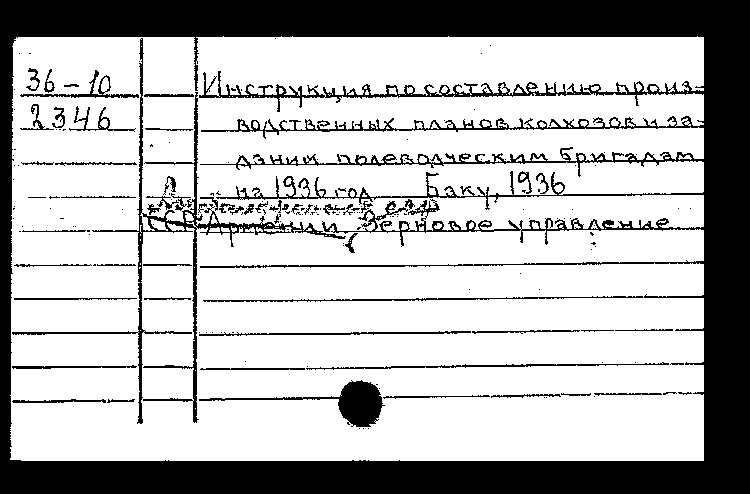 36-10
2346
Инструкция по составлению произ-
водственных планов колхозов и за-
даний полеводческим бригадам
на 1936 год Баку, 1936
ССР Армении Зерновое управление